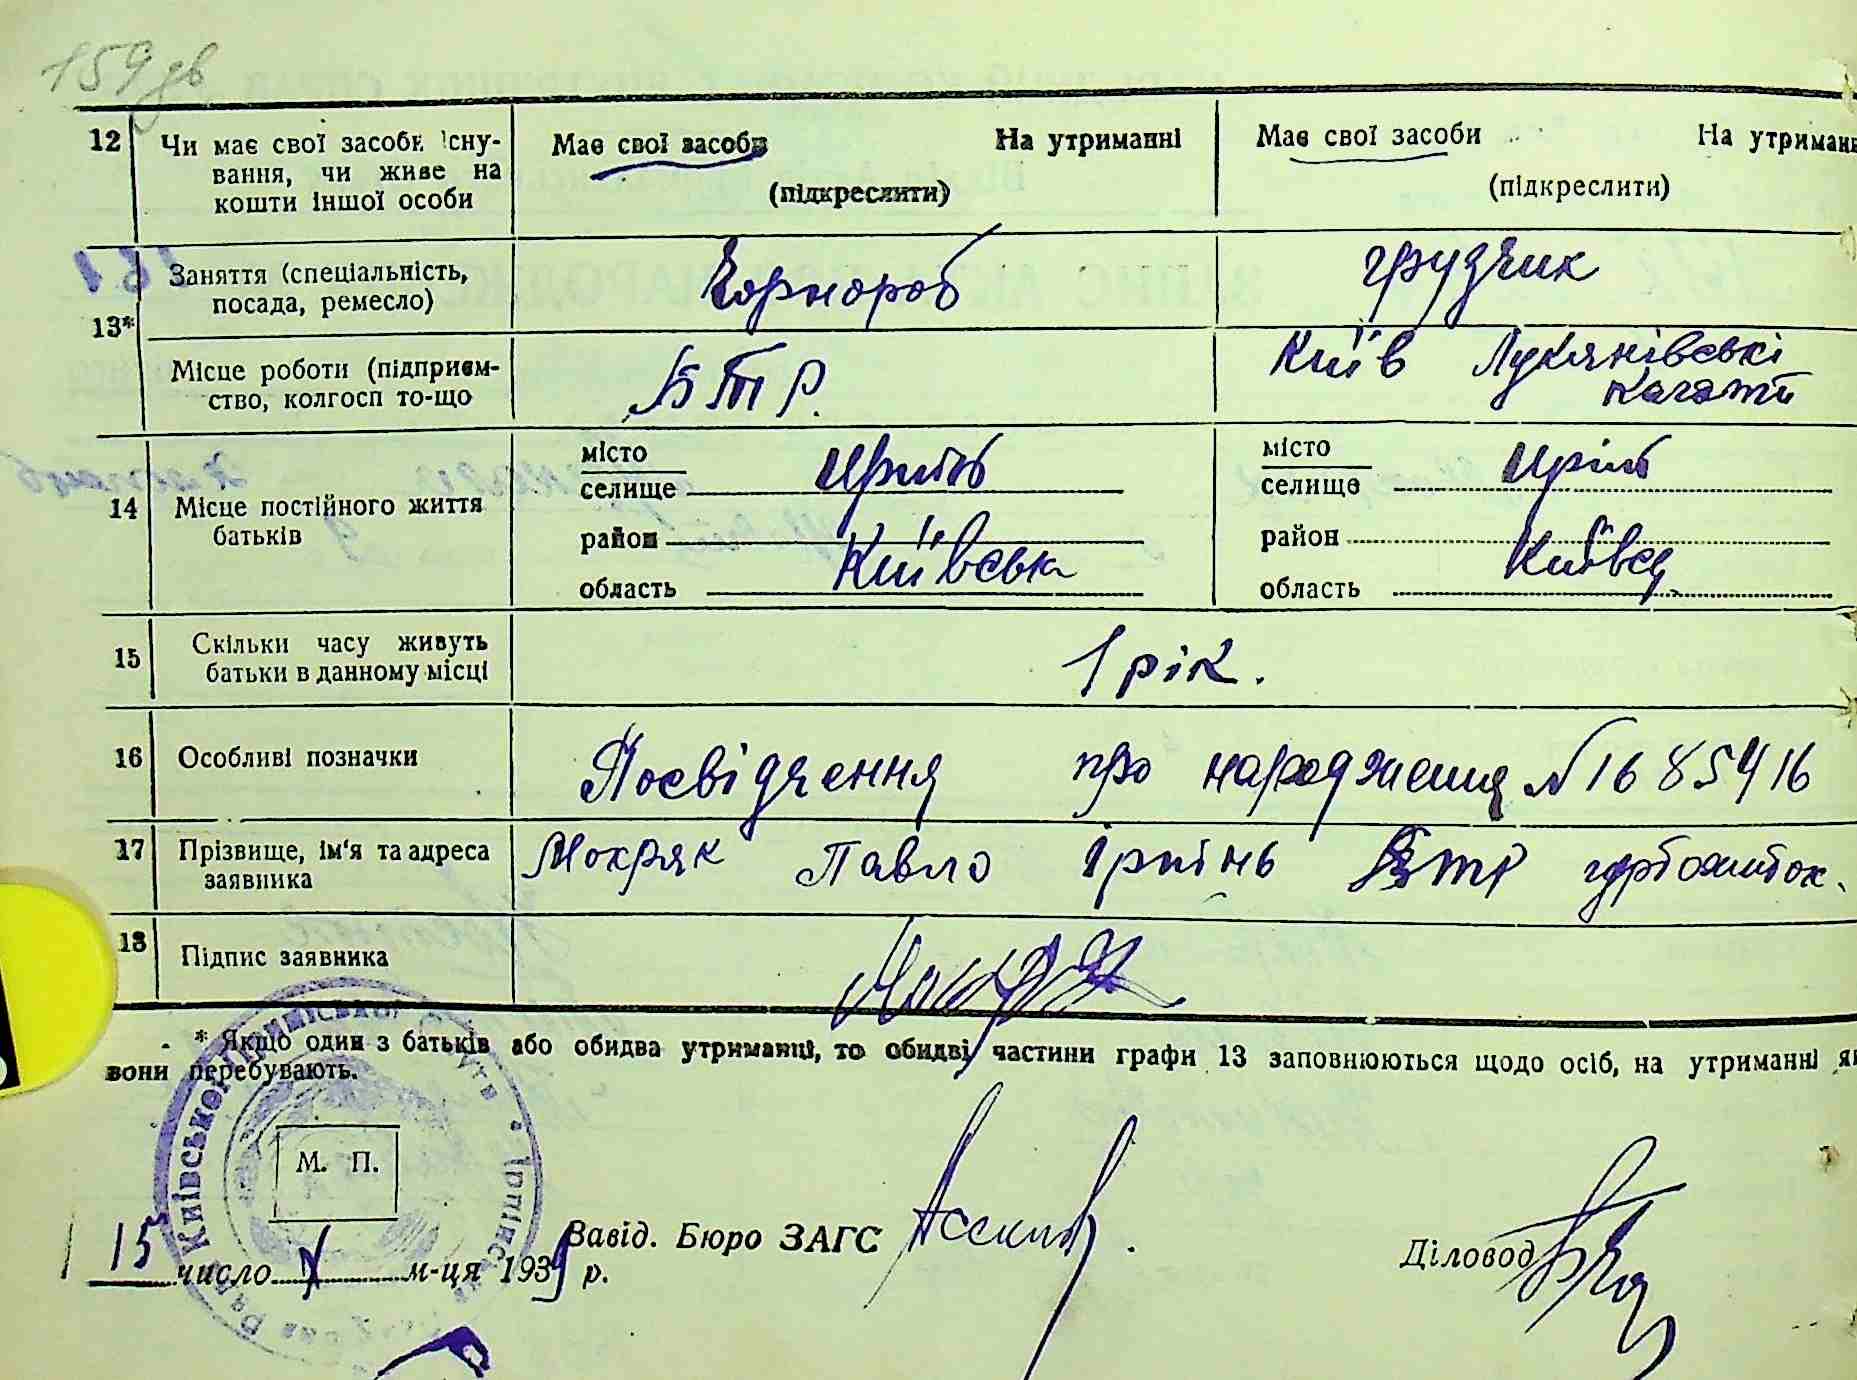 159 зв
12 Чи має свої засоби існу-
вання, чи живе на
кошти іншої особи
Має свої засоби На утриманні
(підкреслити)
Має свої засоби На утриман
(підкреслити)
13* Заняття (спеціальність,
посада, ремесло)
Чорнороб
грузчик
Місце роботи (підприєм-
ство, колгосп то-що
БТР.
Київ Лукянівські
кагати
14 Місце постійного життя
батьків
місто
селище Ирпінь
район
область Київська
місто
селище Ирпінь
район
область Київсь
15 Скільки часу живуть
батьки в данному місці
1 рік.
16 Особливі позначки
Посвідчення про народження №1685416
17 Прізвище, ім'я та адреса
заявника
Мокряк Павло Ірпінь БТР гуртожиток.
18 Підпис заявника
* Якщо один з батьків або обидва утриманці, то обидві частини графи 13 заповнюються щодо осіб, на утриманні як
вони перебувають.
М. П.
Завід. Бюро ЗАГС
Діловод
15 число X м-ця 1939 р.